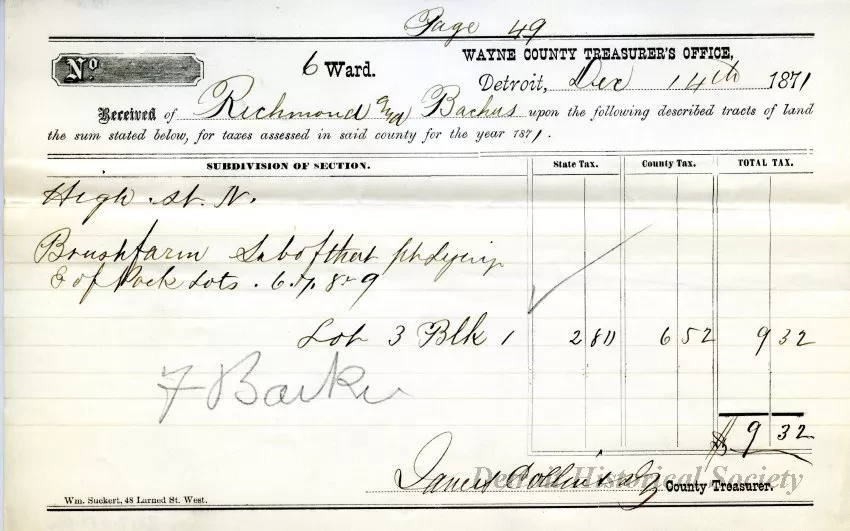 Page 49
No. 6 Ward. WAYNE COUNTY TREASURER'S OFFICE,
Detroit, Dec 14th 1871
Received of Richmond and Bachus upon the following described tracts of land
the sum stated below, for taxes assessed in said county for the year 1871.
SUBDIVISION OF SECTION. State Tax. County Tax. TOTAL TAX.
High St. N.
Brush farm Sub of that pt lying
E of Park Lots 6.7.8 & 9
Lot 3 Blk 1 2 80 6 52 9 32
F Barker
$ 9 32
County Treasurer.
Detroit Historical Society
Wm. Suckert, 48 Larned St. West.